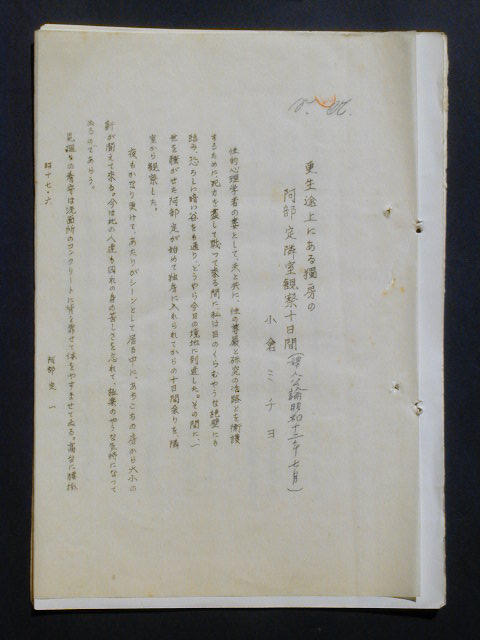 更生途上にある獨房の
阿部定隣室観察十日間（婦人公論昭和十二年七月）
小倉ミチヨ
性的心理学者の妻として、夫と共に、性の尊厳と研究の活路とを衛護
するために死力を盡して戦って来る間に私は目のくらむやうな絶壁にも
踏み、恐ろしい暗い谷をも通り、どうやら今日の境地に到達した。その間に、一
世を騒がせた阿部定が始めて独房に入れられてからの十日間余りを隣
室から観察した。
夜もかなり更けて、あたりがシーンとして居る中に、あちこちの房から大小の
鼾が聞えて来る。今は他の人達も囚れの身の苦しさを忘れて、極楽のやうな気持になって
ゐるのであらう。
見廻りの看守は洗面所のコンクリートに背を靠せて体をやすませてゐる。高台に腰掛
昭十七・六
阿部定 一